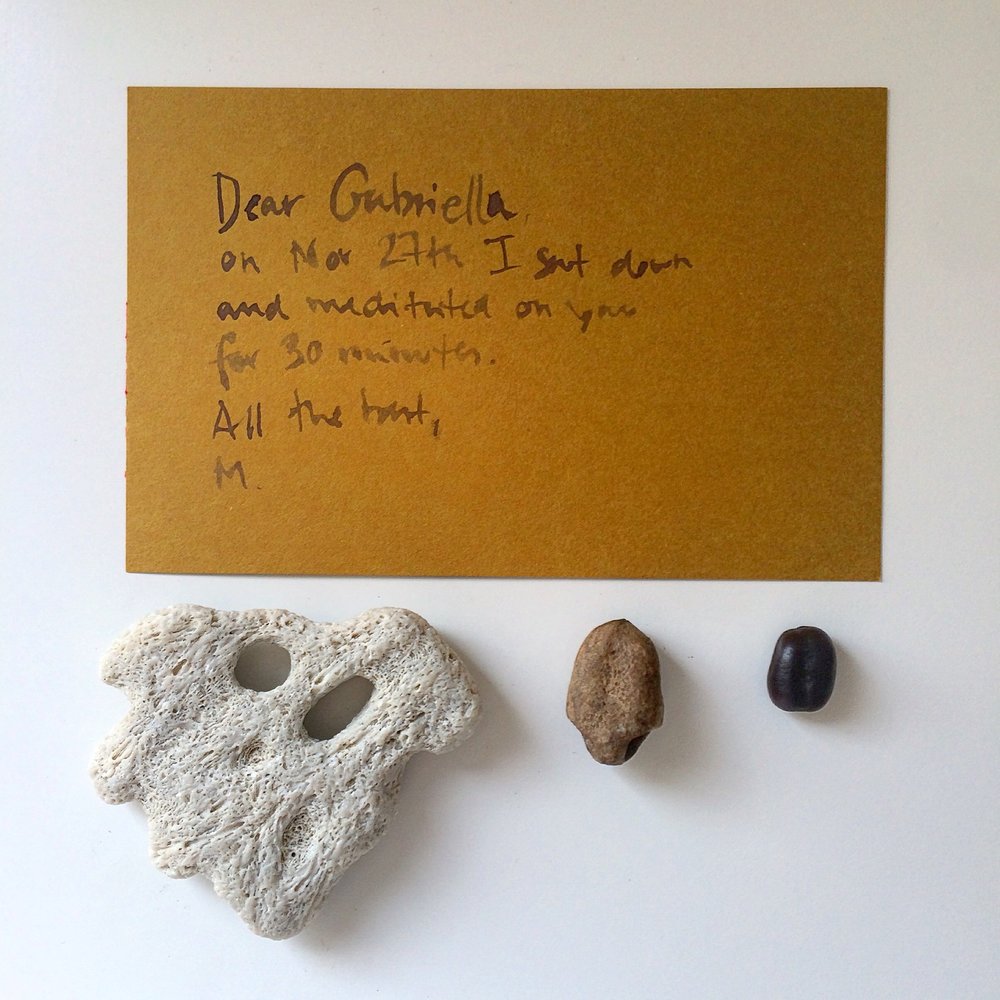 Dear Gabriella,
on Nov 27th I sat down
and meditated on you
for 30 minutes.
All the best,
M.